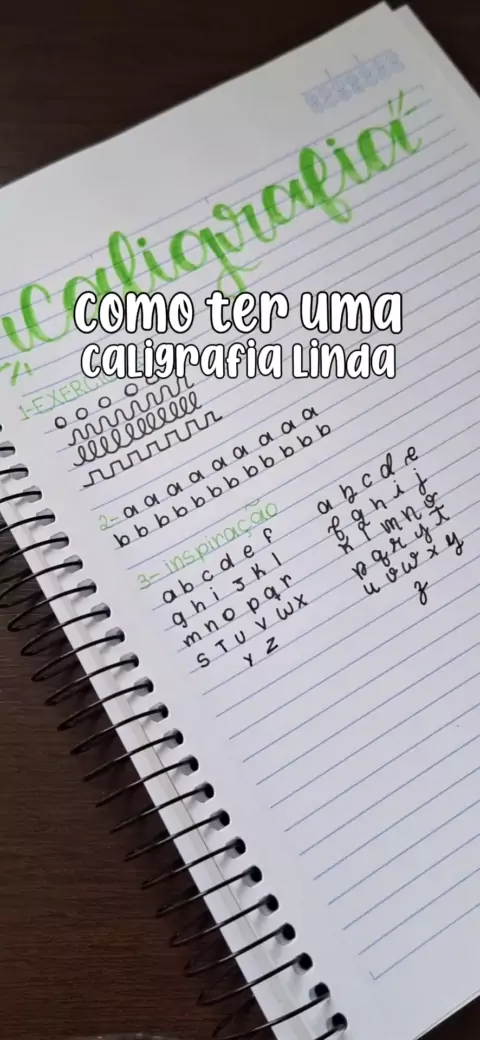 Caligrafia
Como ter uma
caligrafia linda
1-EXERCÍ
2- a a a a a a a a a
b b b b b b b b b b b
3- inspiração
a b c d e f
g h i j k l
m n o p q r
s t u v w x
y z
a b c d e
f g h i j
k l m n o
p q r s t
u v w x y
z